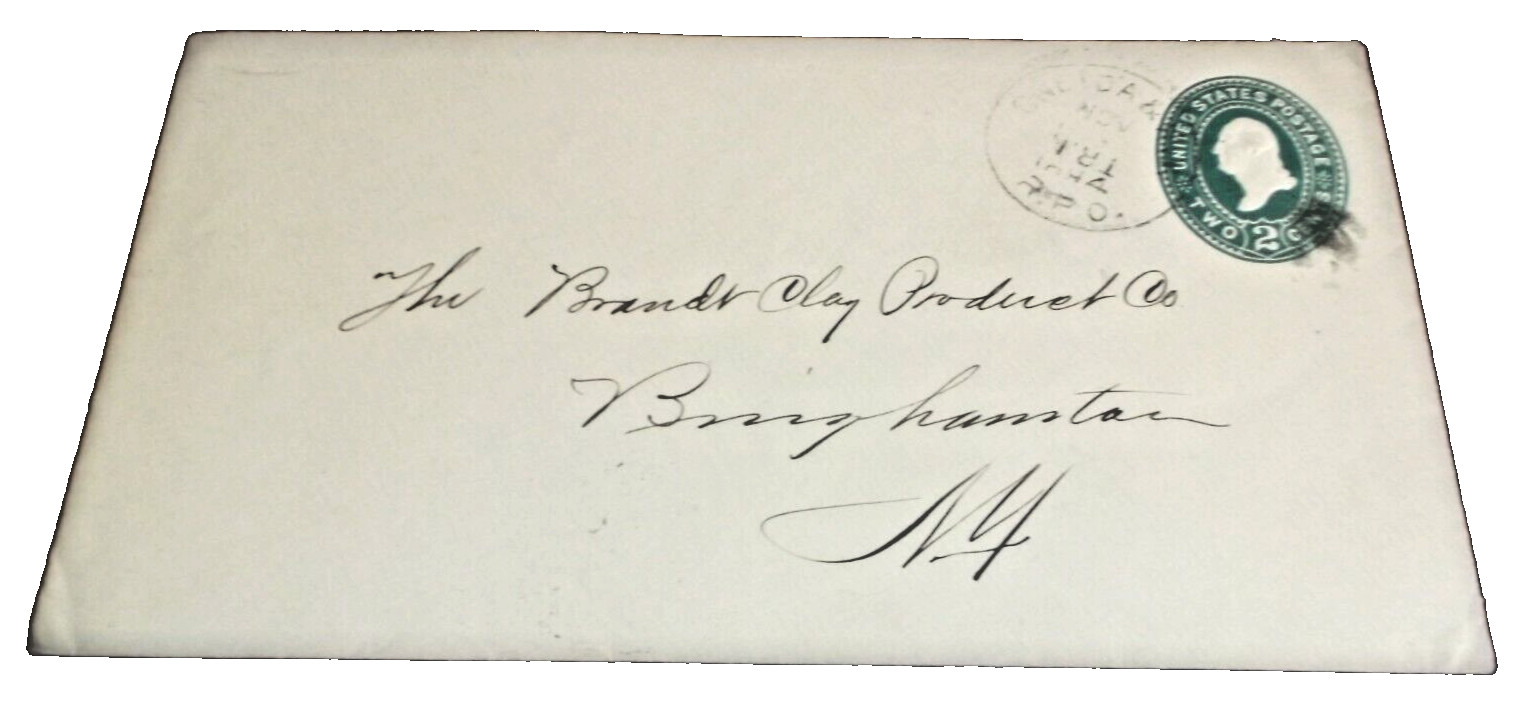 ONEIDA &
NOV
R.P.O.
UNITED STATES POSTAGE
TWO 2 CENTS
The Brandt Clay Product Co
Binghamton
N.Y